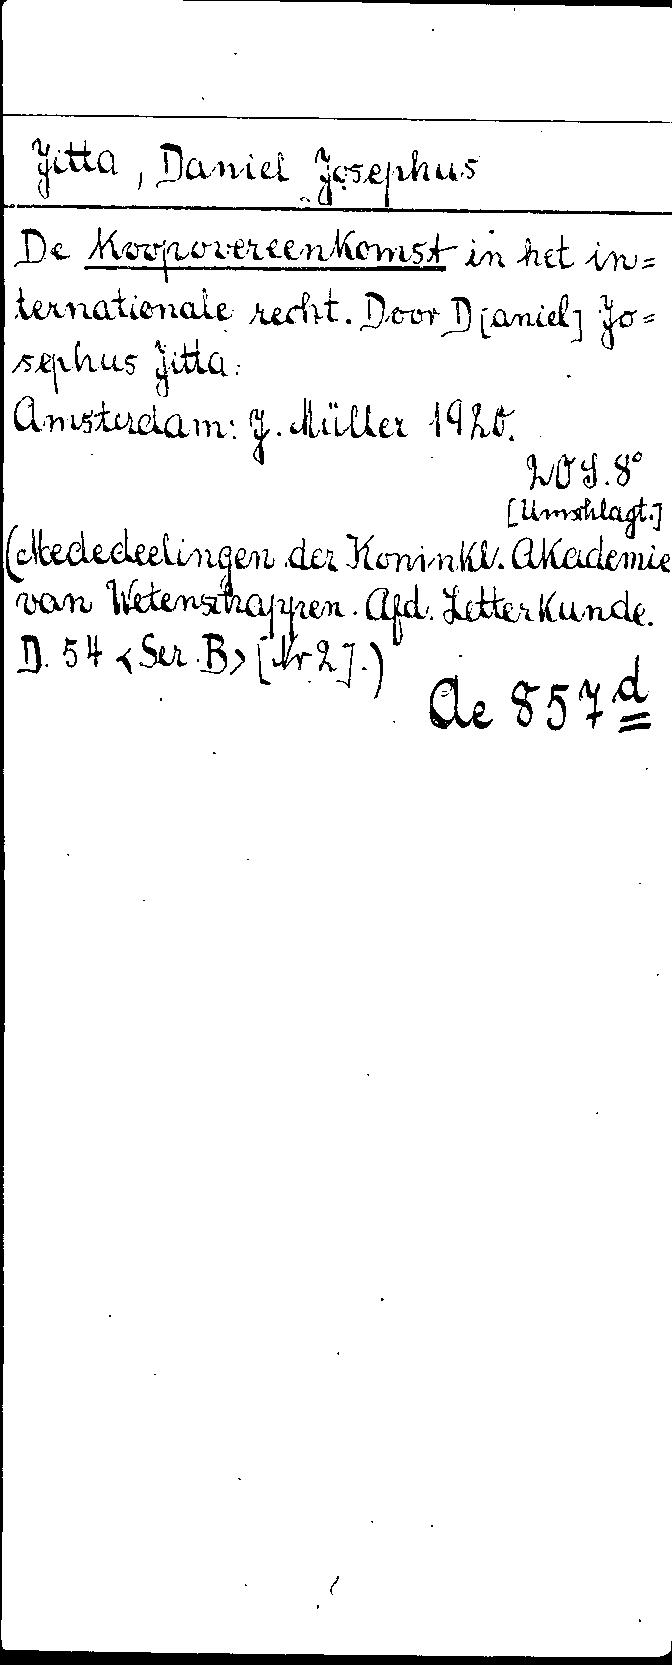 Jitta, Daniel Josephus
De Koopovereenkomst in het in=
ternationale recht. Door D[aniel] Jo=
sephus Jitta.
Amsterdam: J. Müller 1920.
20 S. 8°
[Umschlagt.]
(Mededeelingen der Koninkl. Akademie
van Wetenschappen. Afd. Letterkunde.
D. 54 <Ser. B> [Nr 2].)
Ae 857d